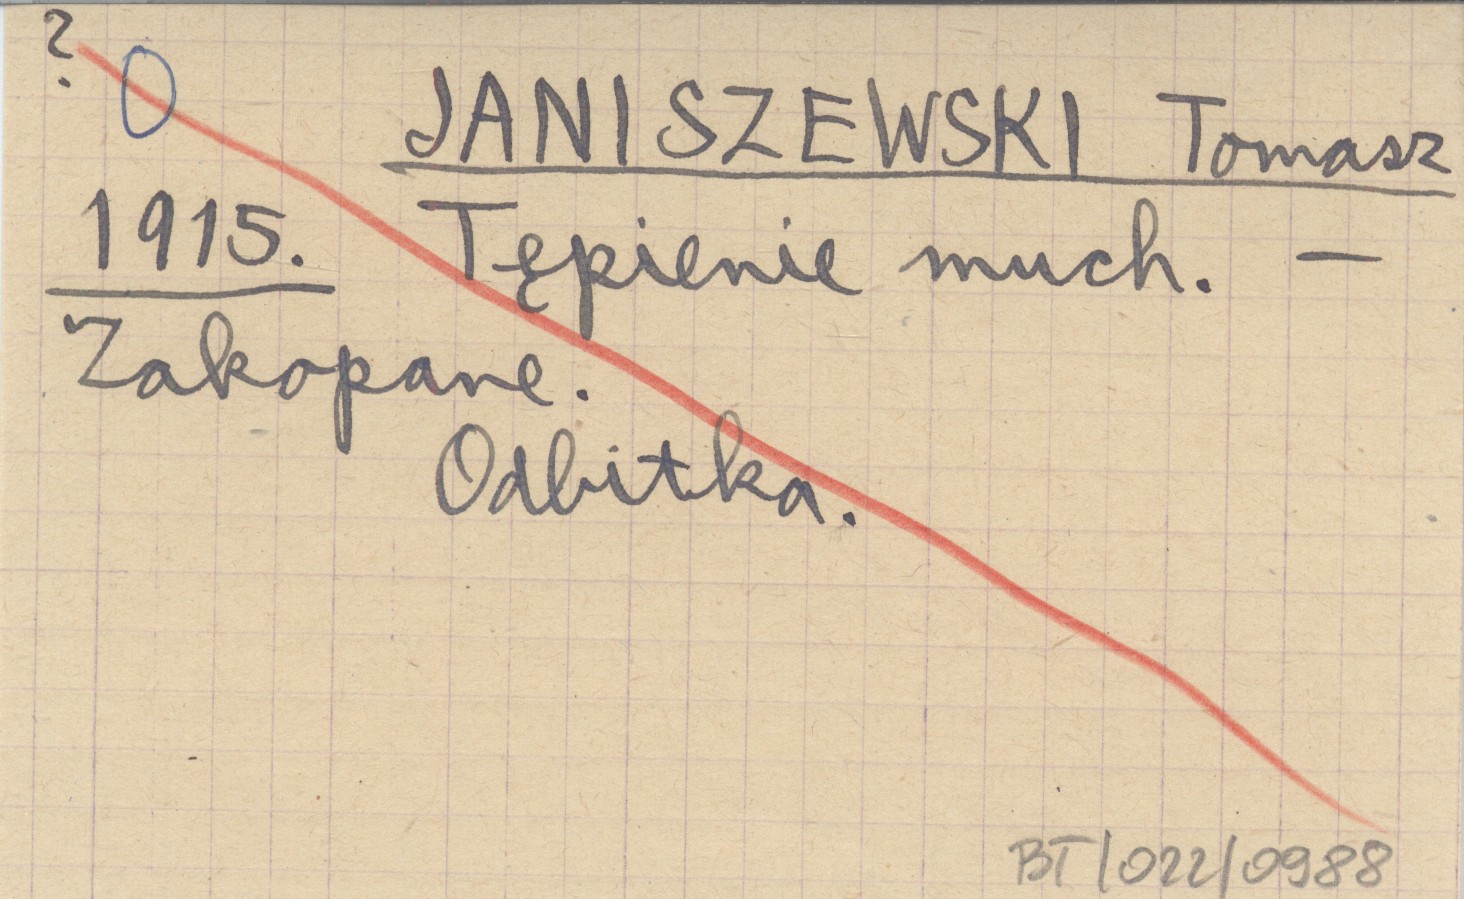 ?
0
JANISZEWSKI Tomasz
1915. Tępienie much. —
Zakopane.
Odbitka.
BT/022/0988